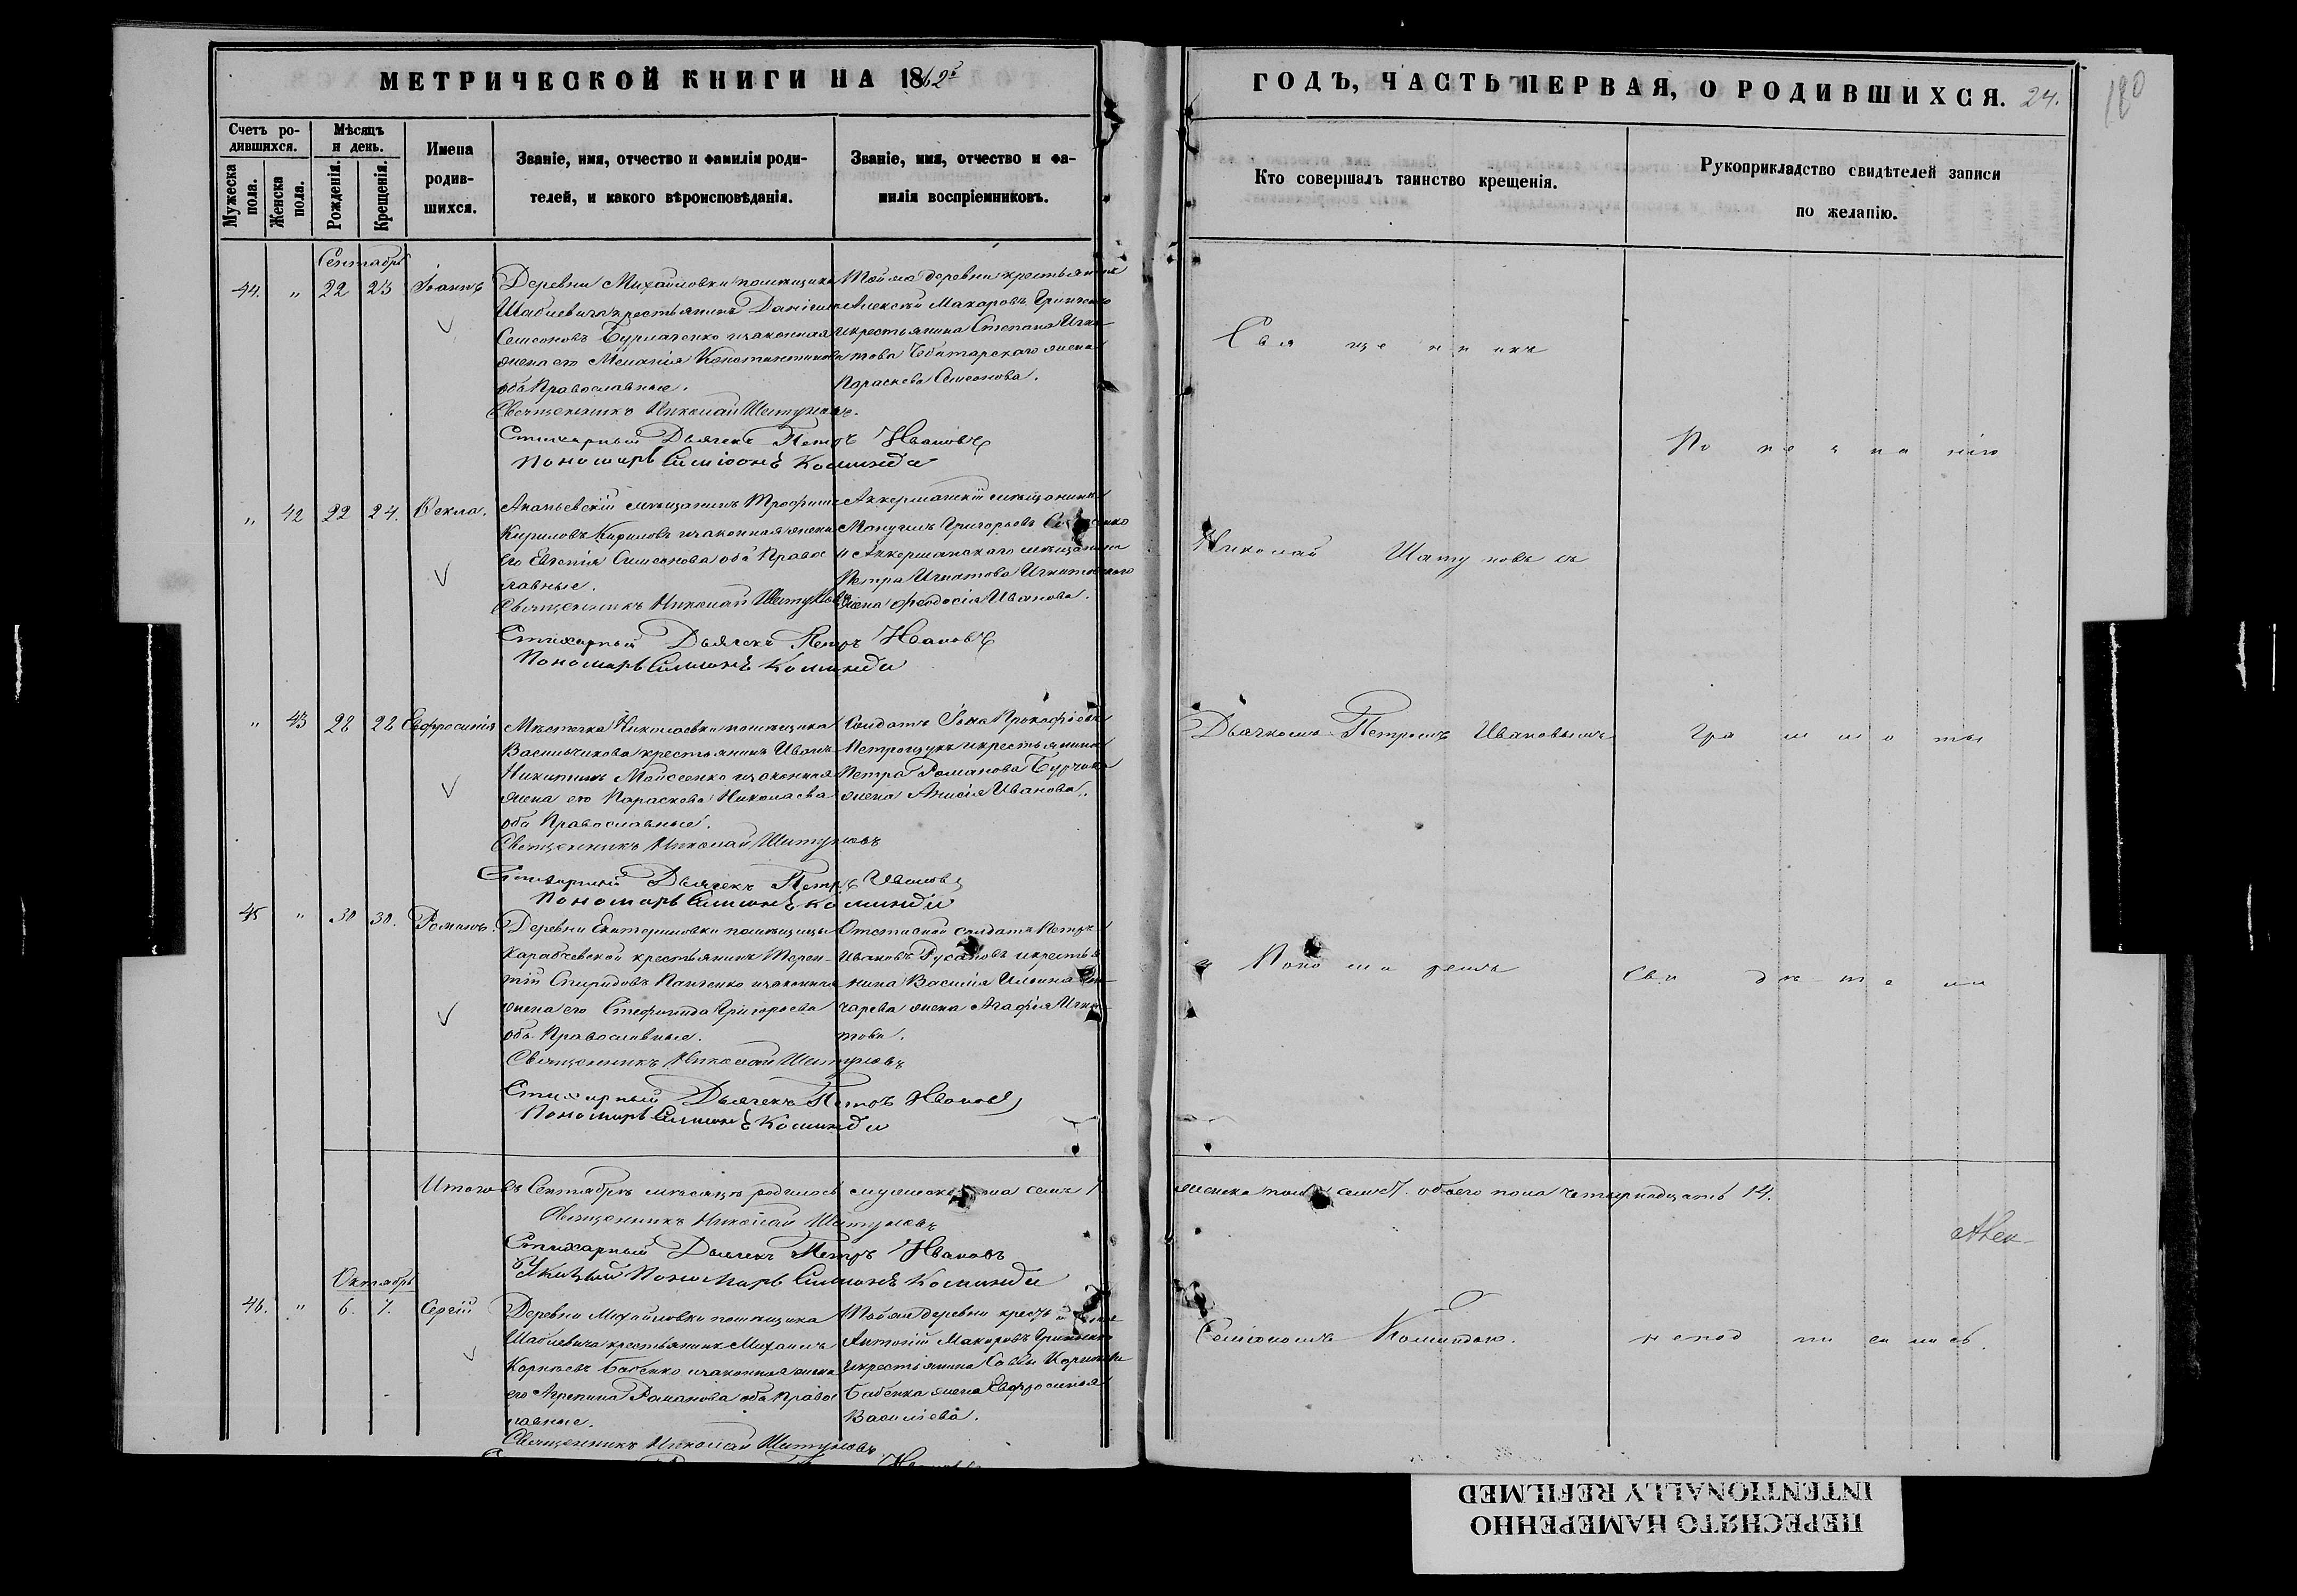 МЕТРИЧЕСКОЙ КНИГИ НА 1862й
ГОДЪ, ЧАСТЬ ПЕРВАЯ, О РОДИВШИХСЯ. 24.
180
Счетъ ро-
дившихся.
Мужеска пола.
Женска пола.
Мѣсяцъ
и день.
Рожденія.
Крещенія.
Имена
родив-
шихся.
Званіе, имя, отчество и фамилія роди-
телей, и какого вѣроисповѣданія.
Званіе, имя, отчество и фа-
милія воспріемниковъ.
Кто совершалъ таинство крещенія.
Рукоприкладство свидѣтелей записи
по желанію.
Сентябрь
44. " 22 23 Іоаннъ
Деревни Михайловки помѣщика
Шабліевича крестьянинъ Даніилъ
Симеоновъ и законная
жена его Меланія Константинова
оба Православные.
Священникъ Николай Шатуновъ.
Стихарный Дьячекъ Петръ Ивановъ
Пономарь Симіонъ Коминда
Той же деревни крестьянинъ
Алексѣй Макаровъ Гринченко
и крестьянина Степана Игна-
това Чеботарскаго жена
Параскева Симеонова.
" 42 22 24. Ѳекла.
Ананьевскій мѣщанинъ Трофимъ
Кириловъ Кириловъ и законная жена
его Евгенія Симеонова оба Правос
лавные.
Священникъ Николай Шатуновъ
Стихарный Дьячекъ Петръ Ивановъ
Пономарь Симіонъ Коминда
Аккерманскій мѣщанинъ
Мануилъ Григорьевъ
и Аккерманскаго мѣщанина
Петра Игнатова
жена Ѳеодосія Иванова.
" 43 28 28 Евфросинія
Мѣстечка Николаевки помѣщика
Васильчикова крестьянинъ Иванъ
Никитинъ Мойсеенко и законная
жена его Параскева Николаева
оба Православные.
Священникъ Николай Шатуновъ
Стихарный Дьячекъ Петръ Ивановъ
Пономарь Симіонъ Коминда
Солдатъ Іона Прокофіевъ
Петрощукъ и крестьянина
Петра Романова
жена Анисія Иванова.
45 " 30 30. Романъ.
Деревни Екатериновки помѣщицы
Карабчевской крестьянинъ Терен-
тій Спиридовъ Панченко и законная
жена его Стефанида Григорьева
оба Православные.
Священникъ Николай Шатуновъ
Стихарный Дьячекъ Петръ Ивановъ
Пономарь Симіонъ Коминда
Отставной солдатъ Петръ
Ивановъ Русановъ и крестья
нина Василія Ильина
жена Агафія Игна-
това.
Итого въ Сентябрѣ мѣсяцѣ родилось мужеска пола семь 7.
женска пола семь 7. обоего пола четырнадцать 14.
Священникъ Николай Шатуновъ
Стихарный Дьячекъ Петръ Ивановъ
Пономарь Симіонъ Коминда
Октябрь
46. " 6. 7. Сергій
Деревни Михайловки помѣщика
Шабліевича крестьянинъ Михаилъ
Корнѣевъ Бабенко и законная жена
его Агрепина Романова оба Правос
лавные.
Священникъ Николай Шатуновъ
Той же деревни
Антоній Макаровъ Гринченко
и крестьянина Саввы Корнѣева
Бабенка жена Евфросинія
Василіева.
Священникъ
Николай Шатуновъ съ
Дьячкомъ Петромъ Ивановымъ
и Пономаремъ
Симіономъ Коминдою.
По незнанію
грамоты
свидѣтели
неподписались.
ПЕРЕСНЯТО НАМЕРЕННО
INTENTIONALLY REFILMED